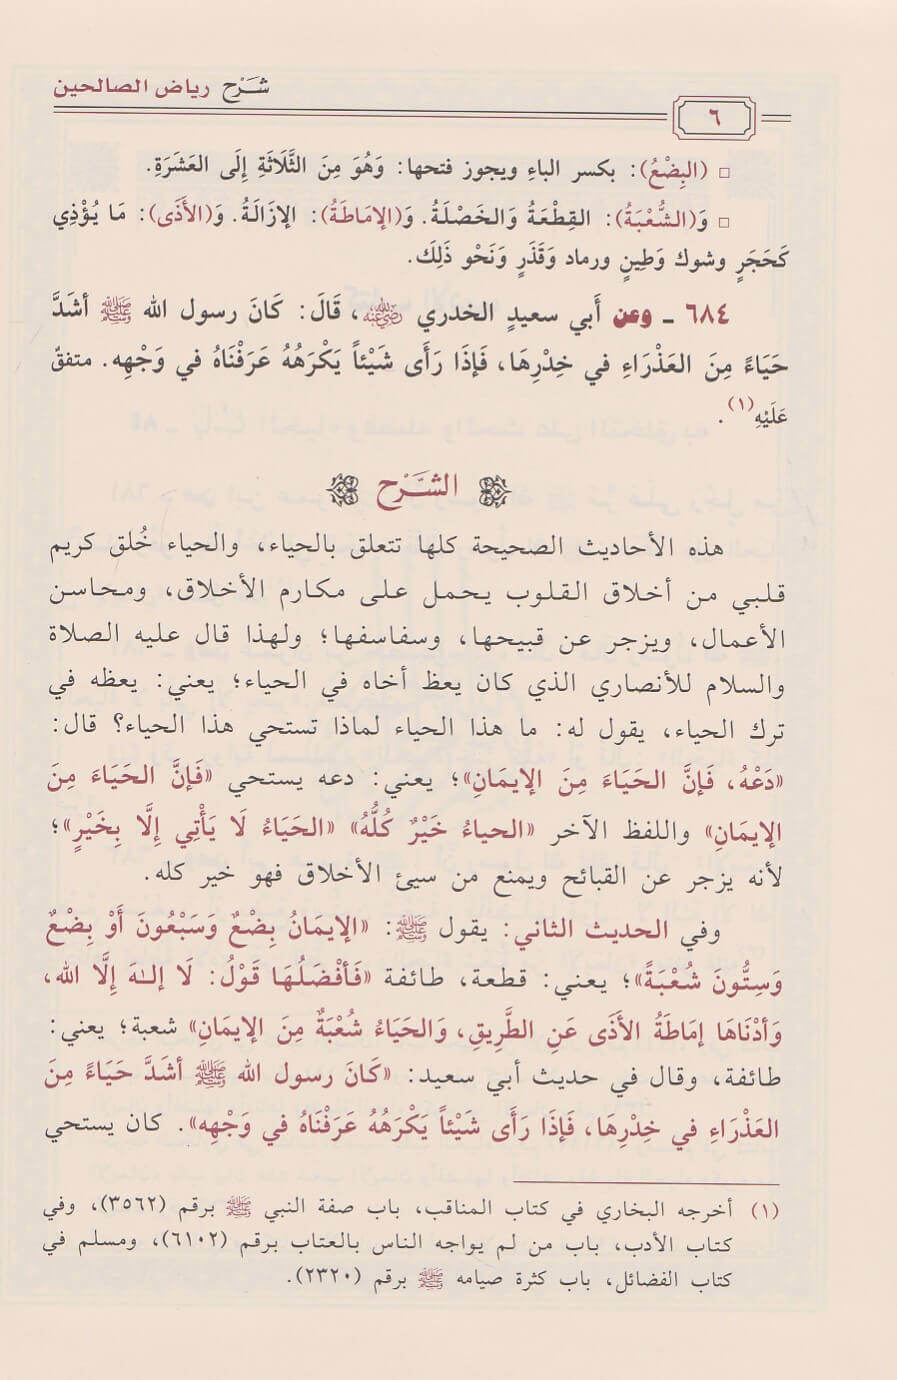 شَرْح رياض الصالحين
٦
□ (البِضْعُ): بكسر الباءِ ويجوز فتحها: وَهُوَ مِنَ الثَّلَاثَةِ إِلَى العَشَرَةِ.
□ وَ(الشُّعْبَةُ): القِطْعَةُ وَالخَصْلَةُ. وَ(الإمَاطَةُ): الإزَالَةُ. وَ(الأَذَى): مَا يُؤْذِي
كَحَجَرٍ وشوك وَطِينٍ ورماد وَقَذَرٍ وَنَحْو ذَلِكَ.
٦٨٤ ـ وعن أَبي سعيدٍ الخدري رضي الله عنه، قَالَ: كَانَ رسول الله ﷺ أشَدَّ
حَيَاءً مِنَ العَذْرَاءِ في خِدْرِهَا، فَإذَا رَأَى شَيْئاً يَكْرَهُهُ عَرَفْنَاهُ في وَجْهِه. متفقٌ
عَلَيْهِ(١).
الشَّرْح
هذه الأحاديث الصحيحة كلها تتعلق بالحياء، والحياء خُلق كريم
قلبي من أخلاق القلوب يحمل على مكارم الأخلاق، ومحاسن
الأعمال، ويزجر عن قبيحها، وسفاسفها؛ ولهذا قال عليه الصلاة
والسلام للأنصاري الذي كان يعظ أخاه في الحياء؛ يعني: يعظه في
ترك الحياء، يقول له: ما هذا الحياء لماذا تستحي هذا الحياء؟ قال:
«دَعْهُ، فَإنَّ الحَيَاءَ مِنَ الإيمَانِ»؛ يعني: دعه يستحي «فَإنَّ الحَيَاءَ مِنَ
الإيمَانِ» واللفظ الآخر «الحياءُ خَيْرٌ كُلُّهُ» «الحَيَاءُ لَا يَأْتِي إلَّا بِخَيْرٍ»؛
لأنه يزجر عن القبائح ويمنع من سيئ الأخلاق فهو خير كله.
وفي الحديث الثاني: يقول ﷺ: «الإيمَانُ بِضْعٌ وَسَبْعُونَ أَوْ بِضْعٌ
وَسِتُّونَ شُعْبَةً»؛ يعني: قطعة، طائفة «فَأفْضَلُهَا قَوْلُ: لَا إلـٰهَ إلَّا الله،
وَأدْنَاهَا إمَاطَةُ الأَذَى عَنِ الطَّرِيقِ، وَالحَيَاءُ شُعْبَةٌ مِنَ الإيمَانِ» شعبة؛ يعني:
طائفة، وقال في حديث أبي سعيد: «كَانَ رسول الله ﷺ أشَدَّ حَيَاءً مِنَ
العَذْرَاءِ في خِدْرِهَا، فَإذَا رَأَى شَيْئاً يَكْرَهُهُ عَرَفْنَاهُ في وَجْهِه». كان يستحي
(١) أخرجه البخاري في كتاب المناقب، باب صفة النبي ﷺ برقم (٣٥٦٢)، وفي
كتاب الأدب، باب من لم يواجه الناس بالعتاب برقم (٦١٠٢)، ومسلم في
كتاب الفضائل، باب كثرة صيامه ﷺ برقم (٢٣٢٠).